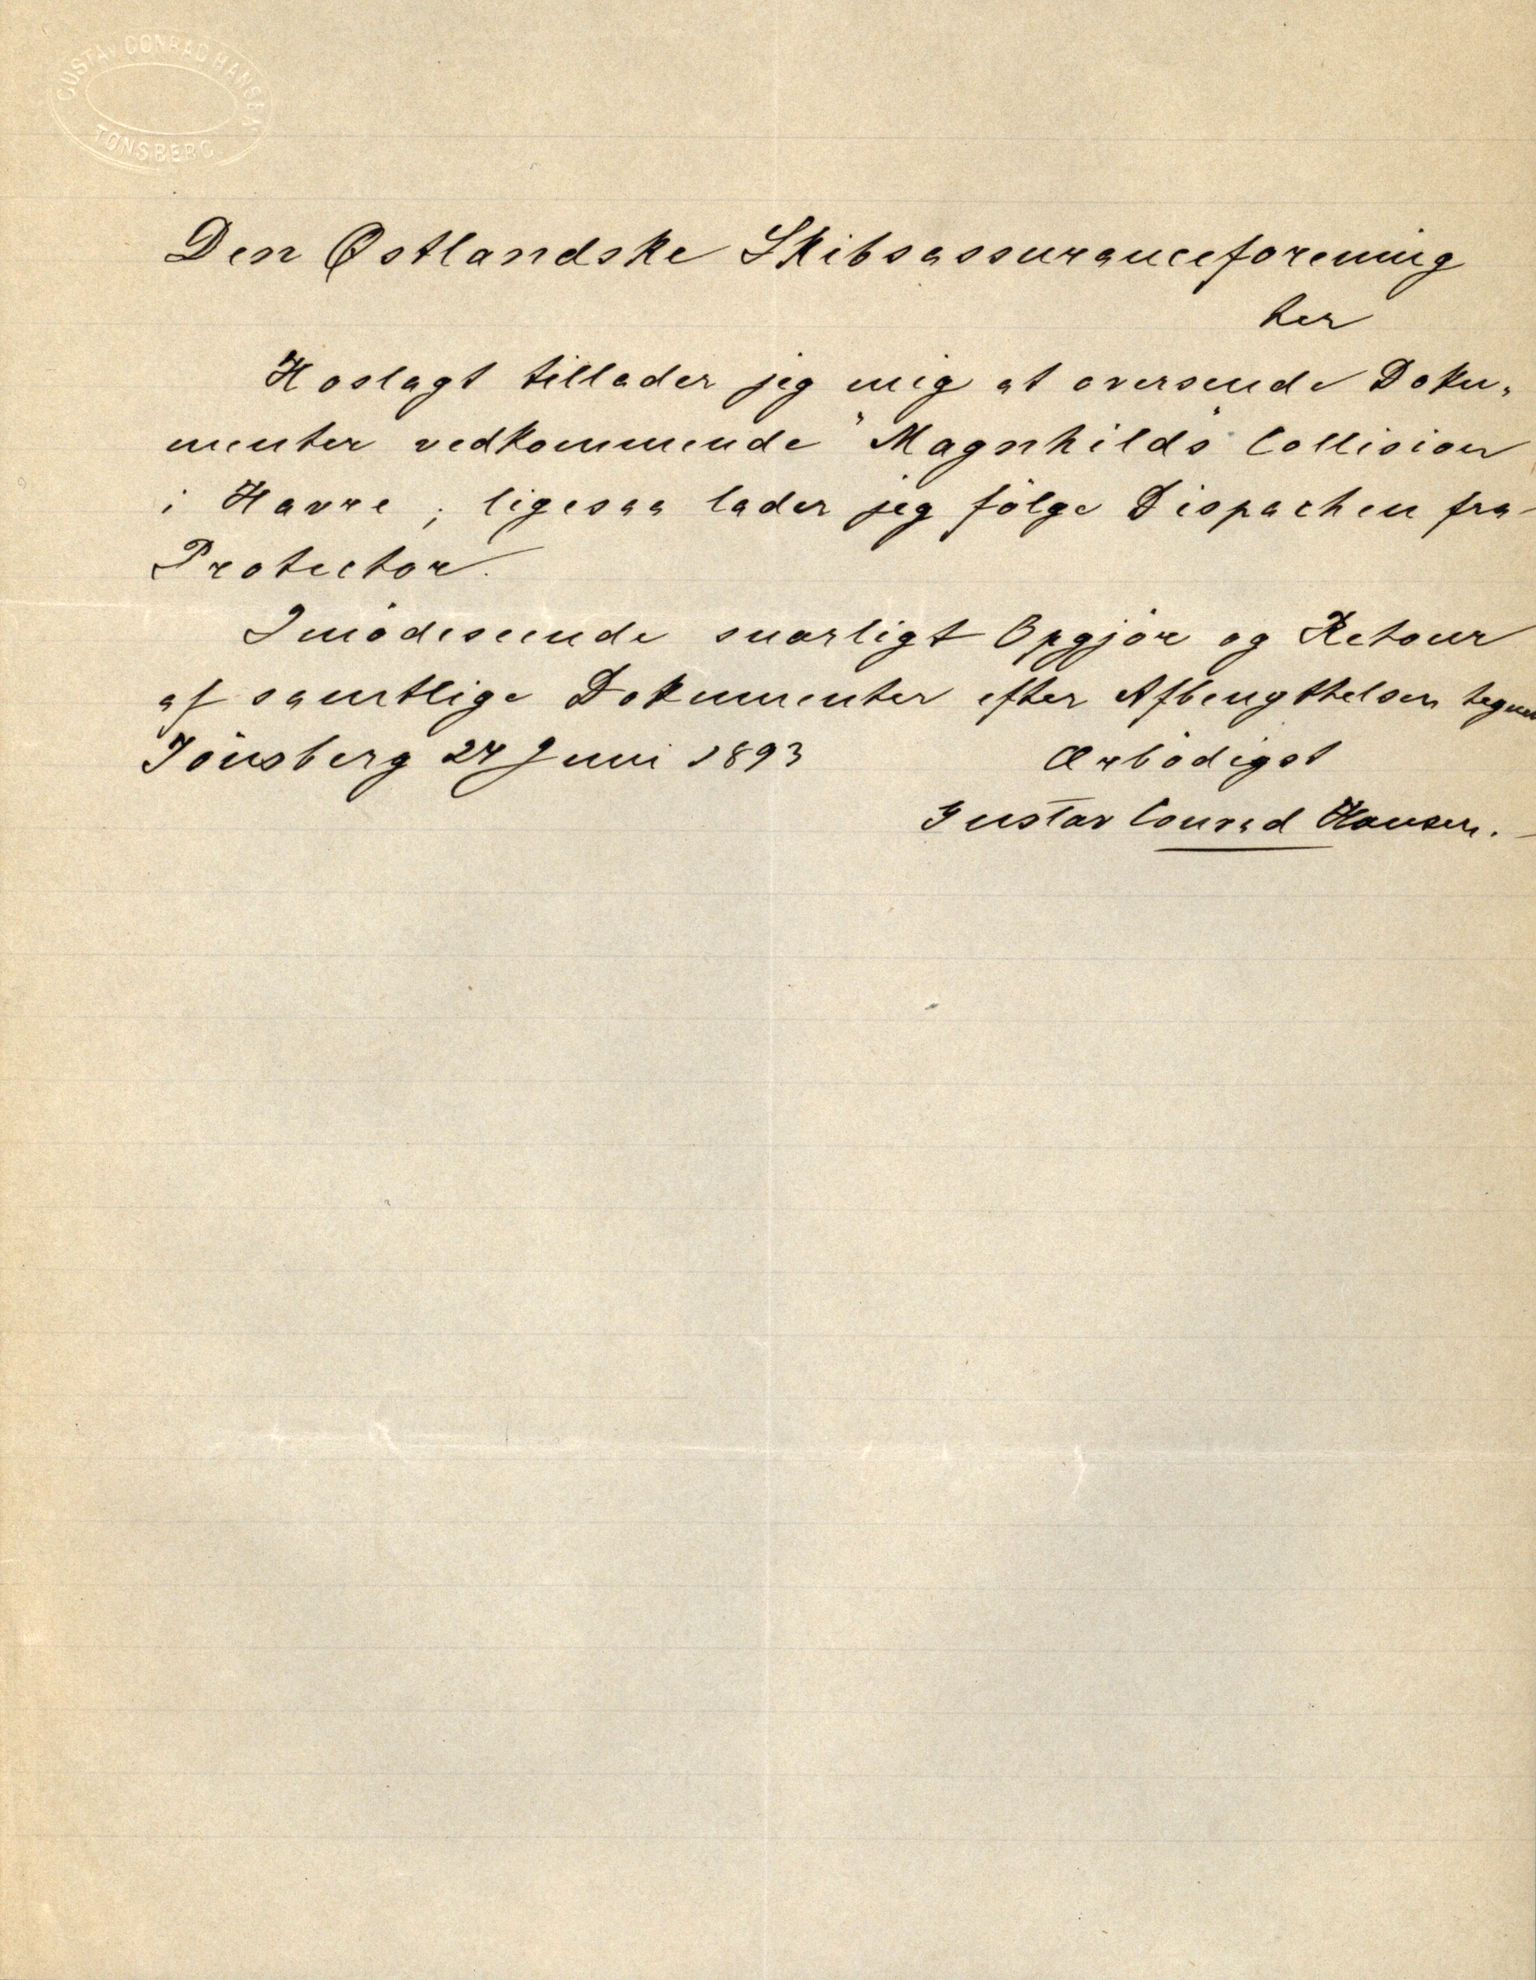 GUSTAV CONRAD HANSEN
TØNSBERG.
Den Østlandske Skibsassuranceforening
her
Hoslagt tillader jeg mig at oversende Doku-
menter vedkommende "Magnhilds" Collision
i Havre ; ligesaa lader jeg fölge Dispachen fra
Protector.
Imödeseende snarligt Opgjör og Retour
af samtlige Dokumenter efter Afbenyttelsen tegner
Tönsberg 27 Juni 1893 Ærbödigst
Gustav Conrad Hansen.